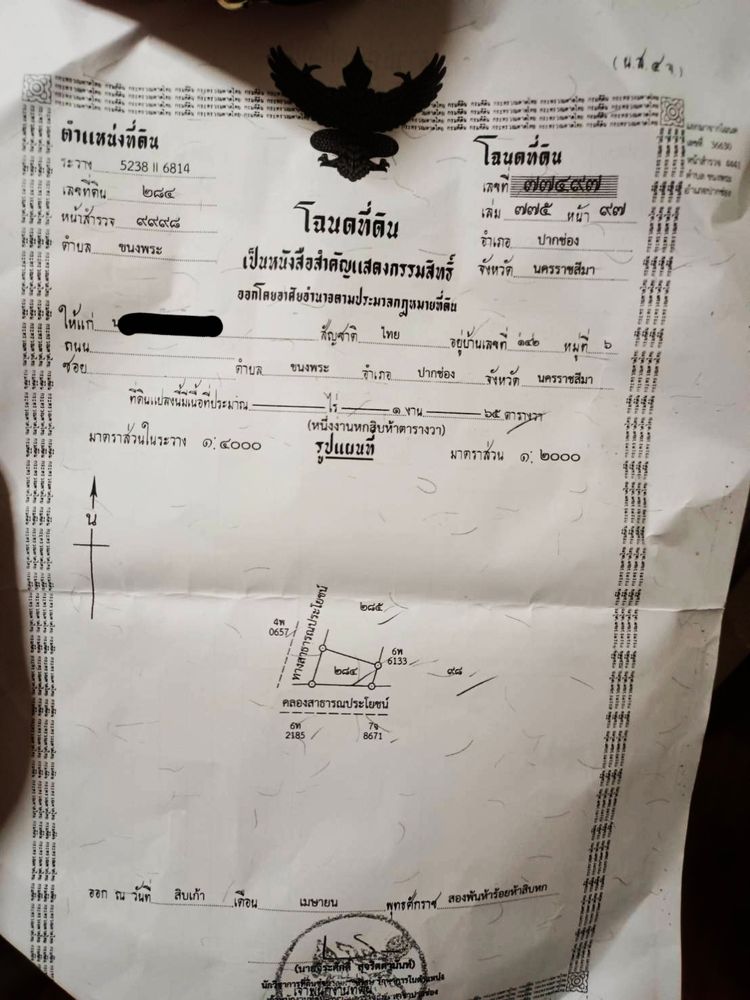 (น.ส.๔จ)
ตำแหน่งที่ดิน
ระวาง 5238 II 6814
เลขที่ดิน ๒๘๔
หน้าสำรวจ ๙๙๙๘
ตำบล ขนงพระ
โฉนดที่ดิน
เลขที่ ๗๗๔๙๗
เล่ม ๗๗๕ หน้า ๙๗
อำเภอ ปากช่อง
จังหวัด นครราชสีมา
เลขที่ 36630
หน้าสำรวจ 6441
ตำบล ขนงพระ
อำเภอปากช่อง
โฉนดที่ดิน
เป็นหนังสือสำคัญแสดงกรรมสิทธิ์
ออกโดยอาศัยอำนาจตามประมวลกฎหมายที่ดิน
ให้แก่ สัญชาติ ไทย อยู่บ้านเลขที่ ๑๔๒ หมู่ที่ ๖
ถนน
ซอย ตำบล ขนงพระ อำเภอ ปากช่อง จังหวัด นครราชสีมา
ที่ดินแปลงนี้มีเนื้อที่ประมาณ ไร่ ๑ งาน ๖๕ ตารางวา
(หนึ่งงานหกสิบห้าตารางวา)
มาตราส่วนในระวาง ๑:๔๐๐๐ รูปแผนที่ มาตราส่วน ๑:๒๐๐๐
น
๒๘๕
4พ
0657
ทางสาธารณประโยชน์
6พ
6133
๒๘๔
๙๘
คลองสาธารณประโยชน์
6ท 7จ
2185 8671
ออก ณ วันที่ สิบเก้า เดือน เมษายน พุทธศักราช สองพันห้าร้อยห้าสิบหก
เจ้าพนักงานที่ดิน